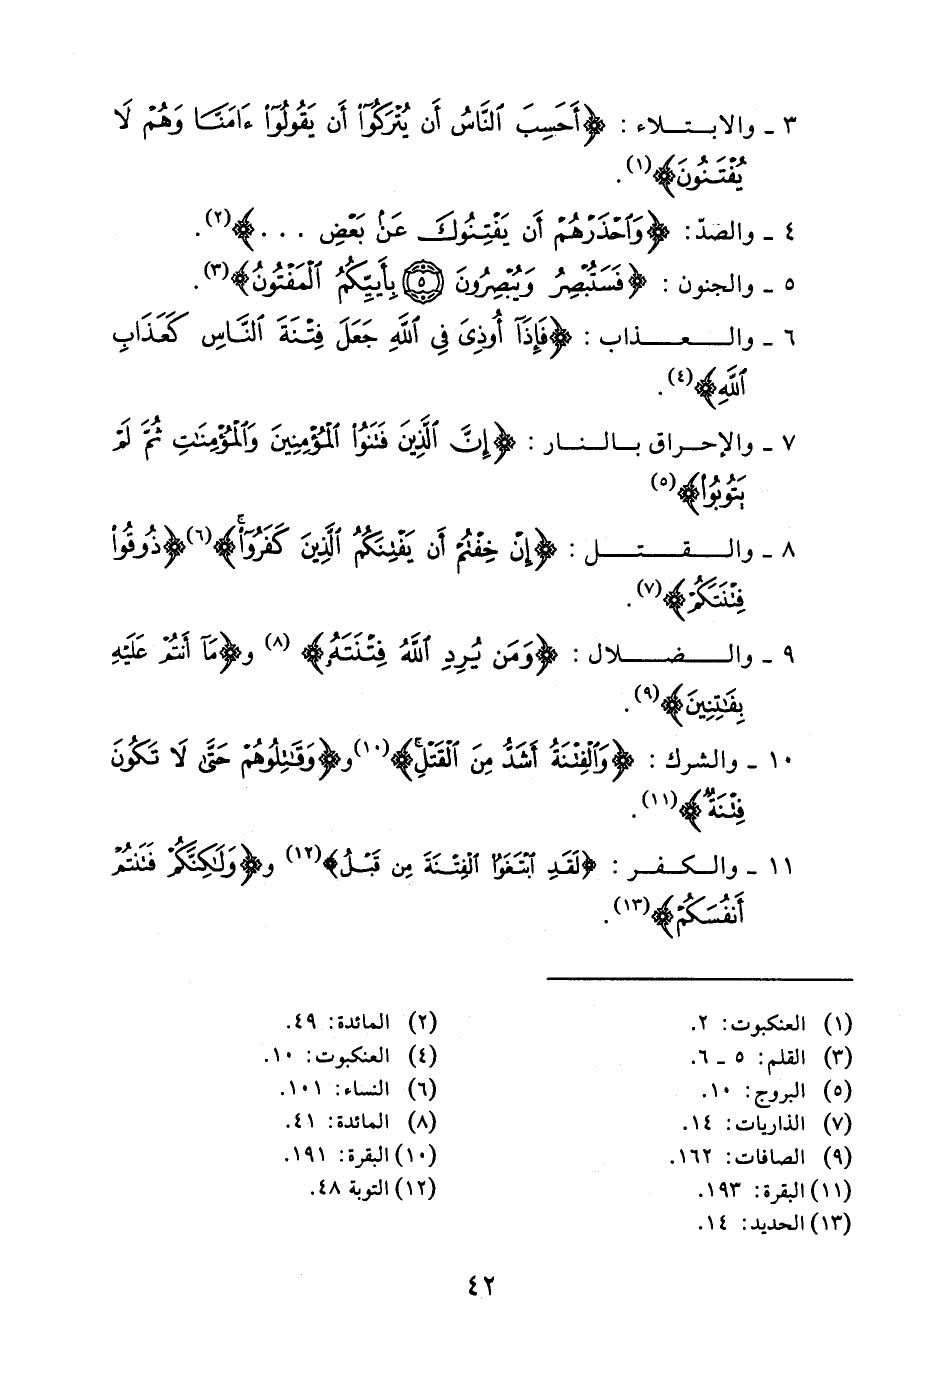 ٣ ـ والابـتـلاء : ﴿أَحَسِبَ ٱلنَّاسُ أَن يُتْرَكُوٓا۟ أَن يَقُولُوٓا۟ ءَامَنَّا وَهُمْ لَا
يُفْتَنُونَ﴾(١).
٤ ـ والصدّ: ﴿وَٱحْذَرْهُمْ أَن يَفْتِنُوكَ عَنۢ بَعْضِ . . .﴾(٢).
٥ ـ والجنون : ﴿فَسَتُبْصِرُ وَيُبْصِرُونَ ۝٥ بِأَييِّكُمُ ٱلْمَفْتُونُ﴾(٣).
٦ ـ والـعـذاب : ﴿فَإِذَآ أُوذِىَ فِى ٱللَّهِ جَعَلَ فِتْنَةَ ٱلنَّاسِ كَعَذَابِ
ٱللَّهِ﴾(٤).
٧ ـ والإحـراق بـالـنـار : ﴿إِنَّ ٱلَّذِينَ فَتَنُوا۟ ٱلْمُؤْمِنِينَ وَٱلْمُؤْمِنَٰتِ ثُمَّ لَمْ
يَتُوبُوا۟﴾(٥)
٨ ـ والـقـتـل : ﴿إِنْ خِفْتُمْ أَن يَفْتِنَكُمُ ٱلَّذِينَ كَفَرُوٓا۟ۚ﴾(٦)﴿ذُوقُوا۟
فِتْنَتَكُمْ﴾(٧).
٩ ـ والـضـلال : ﴿وَمَن يُرِدِ ٱللَّهُ فِتْنَتَهُۥ﴾ (٨) و﴿مَآ أَنتُمْ عَلَيْهِ
بِفَٰتِنِينَ﴾(٩).
١٠ ـ والشرك : ﴿وَٱلْفِتْنَةُ أَشَدُّ مِنَ ٱلْقَتْلِۚ﴾(١٠)و﴿وَقَٰتِلُوهُمْ حَتَّىٰ لَا تَكُونَ
فِتْنَةٌ﴾(١١).
١١ ـ والـكـفـر : ﴿لَقَدِ ٱبْتَغَوُا۟ ٱلْفِتْنَةَ مِن قَبْلُ﴾(١٢) و﴿وَلَٰكِنَّكُمْ فَتَنتُمْ
أَنفُسَكُمْ﴾(١٣).
(١) العنكبوت: ٢.
(٢) المائدة: ٤٩.
(٣) القلم: ٥ ـ ٦.
(٤) العنكبوت: ١٠.
(٥) البروج: ١٠.
(٦) النساء: ١٠١.
(٧) الذاريات: ١٤.
(٨) المائدة: ٤١.
(٩) الصافات: ١٦٢.
(١٠) البقرة: ١٩١.
(١١) البقرة: ١٩٣.
(١٢) التوبة ٤٨.
(١٣) الحديد: ١٤.
٤٢